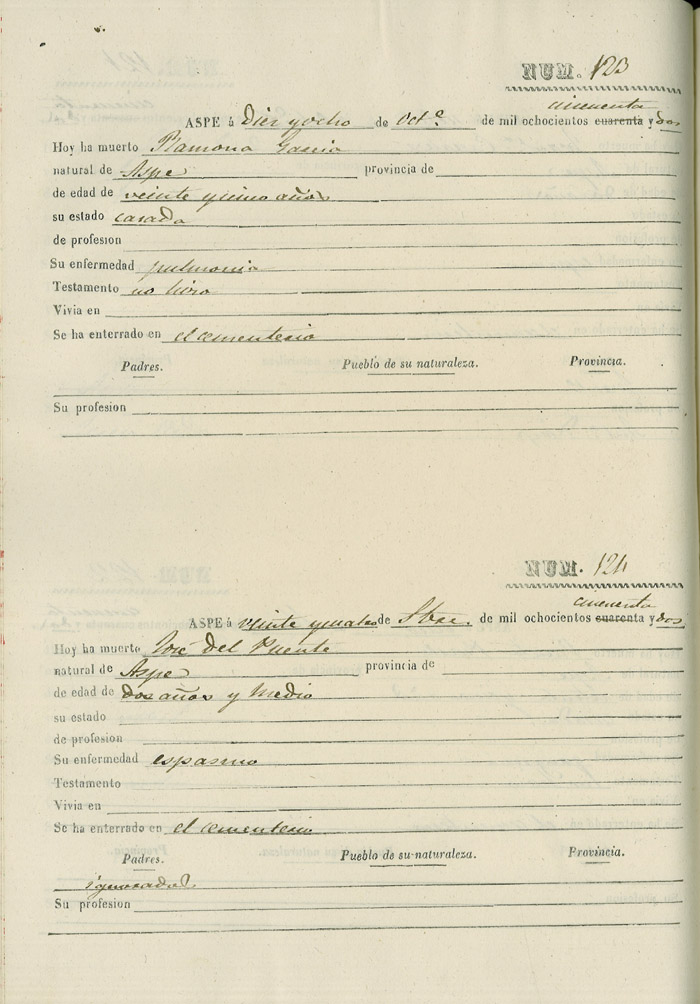 NUM. 123
cincuenta
ASPE á Diez y ocho de Oct.e de mil ochocientos cuarenta y dos
Hoy ha muerto Ramona Garcia
natural de Aspe provincia de
de edad de veinte y cinco años
su estado casada
de profesion
Su enfermedad pulmonia
Testamento no hizo
Vivia en
Se ha enterrado en el cementerio
Padres. Pueblo de su naturaleza. Provincia.
Su profesion
NUM. 124
cincuenta
ASPE á veinte y cuatro de de mil ochocientos cuarenta y dos
Hoy ha muerto José del Puente
natural de Aspe provincia de
de edad de dos años y medio
su estado
de profesion
Su enfermedad espasmo
Testamento
Vivia en
Se ha enterrado en el cementerio
Padres. Pueblo de su naturaleza. Provincia.
ignorados.
Su profesion